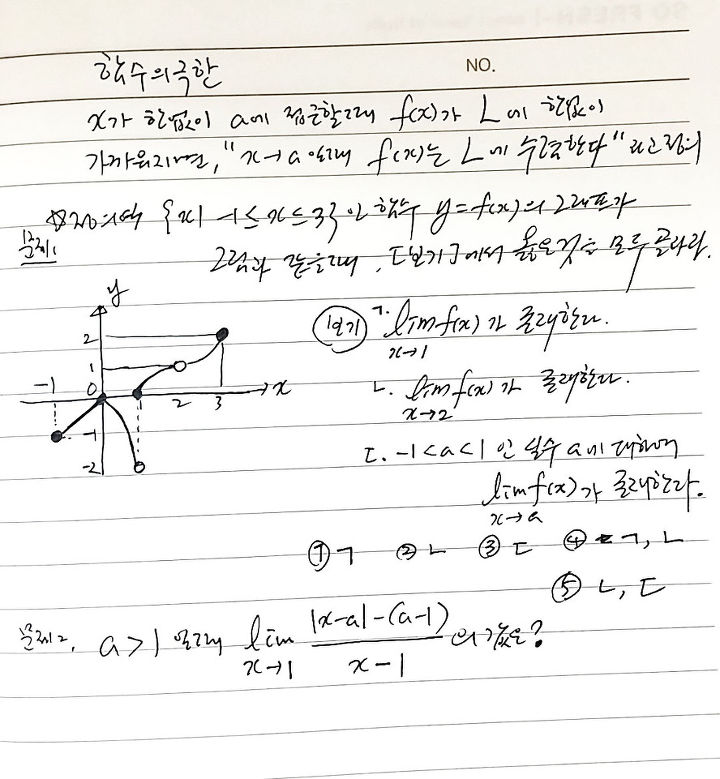 함수의극한
NO.
x가 한없이 a에 접근할때 f(x)가 L에 한없이
가까워지면, "x→a 일때 f(x)는 L에 수렴한다" 라고 정의
☆정의역 {x| -1≤x≤3}인 함수 y=f(x)의 그래프가
문제1
그림과 같을때, [보기]에서 옳은것을 모두 골라라.
y
2
1
-1 0 1 2 3 x
-1
-2
보기 ㄱ. lim f(x)가 존재한다.
x→1
ㄴ. lim f(x)가 존재한다.
x→2
ㄷ. -1<a<1 인 실수 a에 대하여
lim f(x)가 존재한다.
x→a
① ㄱ ② ㄴ ③ ㄷ ④ ㄱ, ㄴ
⑤ ㄴ, ㄷ
문제2. a>1 일때 lim |x-a|-(a-1) 의 값은?
x→1 x-1